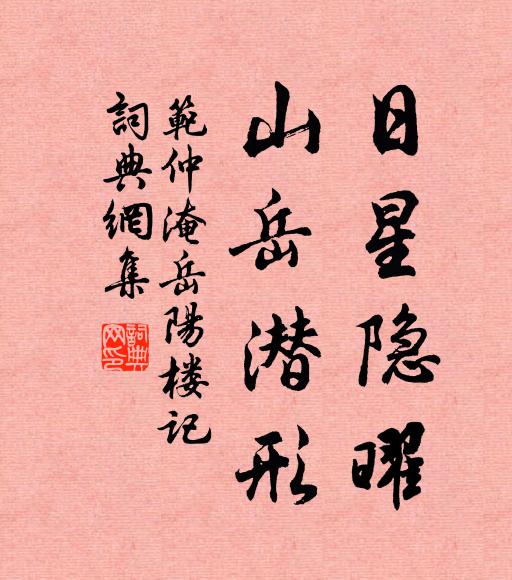 日星隐曜
山岳潜形
範仲淹岳陽楼记
詞典網集
詞典网印